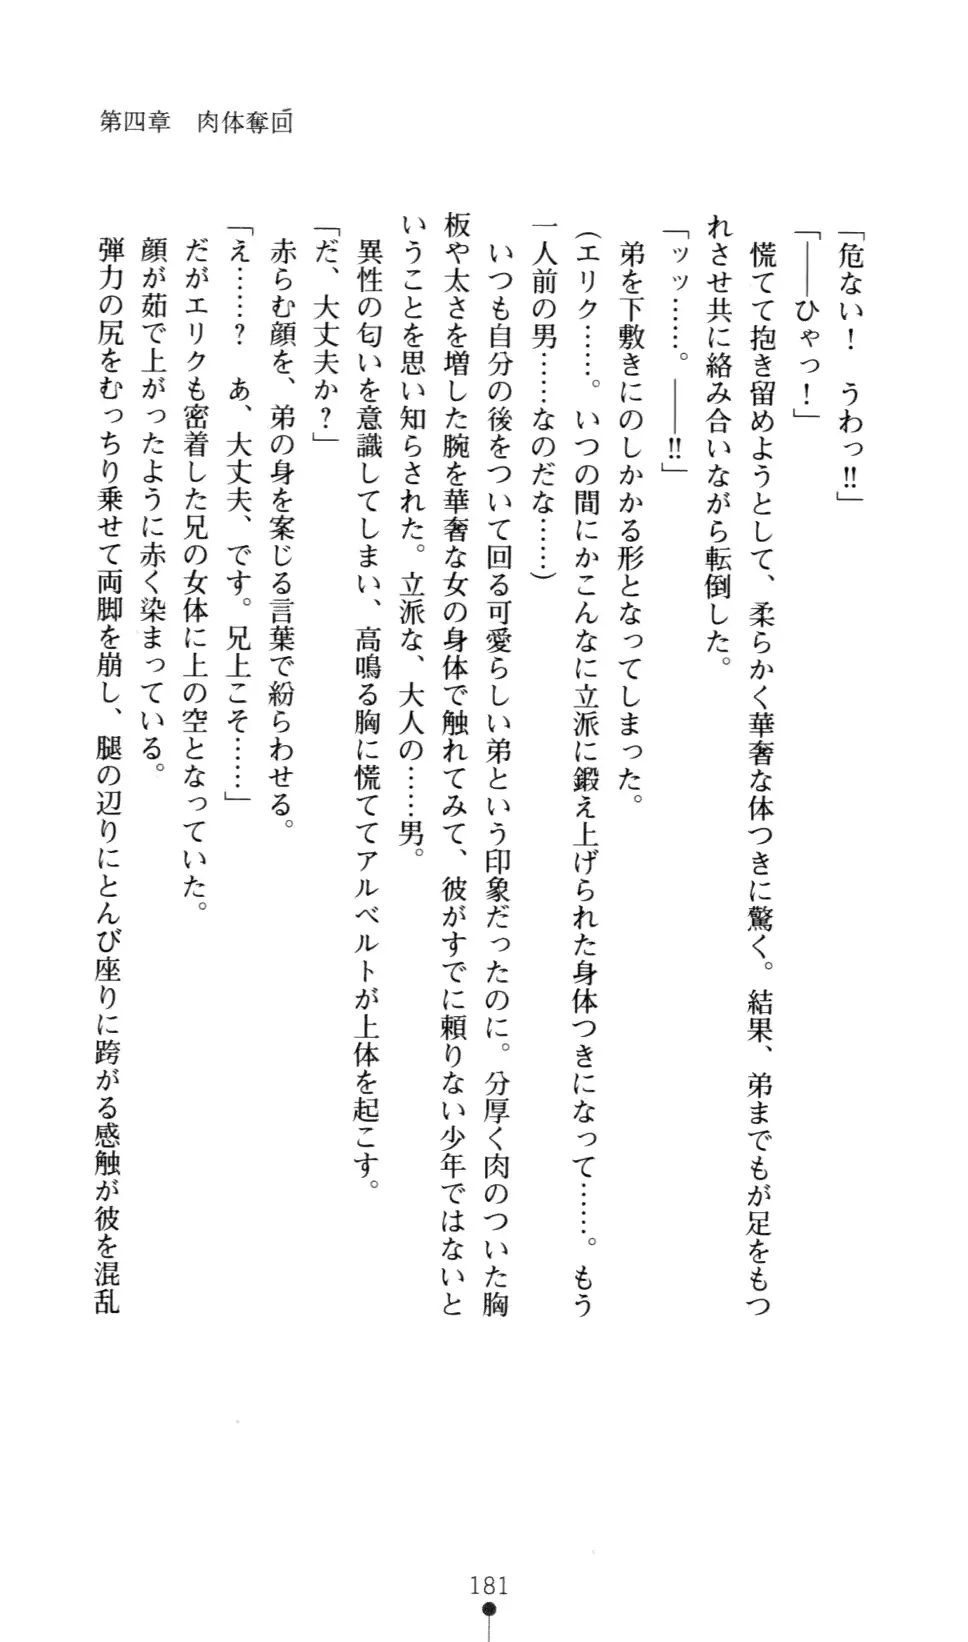 第四章　肉体奪回
「危ない！　うわっ!!」
「――ひゃっ！」
　慌てて抱き留めようとして、柔らかく華奢な体つきに驚く。結果、弟までもが足をもつ
れさせ共に絡み合いながら転倒した。
「ッッ……。――!!」
　弟を下敷きにのしかかる形となってしまった。
（エリク……。いつの間にかこんなに立派に鍛え上げられた身体つきになって……。もう
一人前の男……なのだな……）
　いつも自分の後をついて回る可愛らしい弟という印象だったのに。分厚く肉のついた胸
板や太さを増した腕を華奢な女の身体で触れてみて、彼がすでに頼りない少年ではないと
いうことを思い知らされた。立派な、大人の……男。
　異性の匂いを意識してしまい、高鳴る胸に慌ててアルベルトが上体を起こす。
「だ、大丈夫か？」
　赤らむ顔を、弟の身を案じる言葉で紛らわせる。
「え……？　あ、大丈夫、です。兄上こそ……」
　だがエリクも密着した兄の女体に上の空となっていた。
　顔が茹で上がったように赤く染まっている。
　弾力の尻をむっちり乗せて両脚を崩し、腿の辺りにとんび座りに跨がる感触が彼を混乱
181